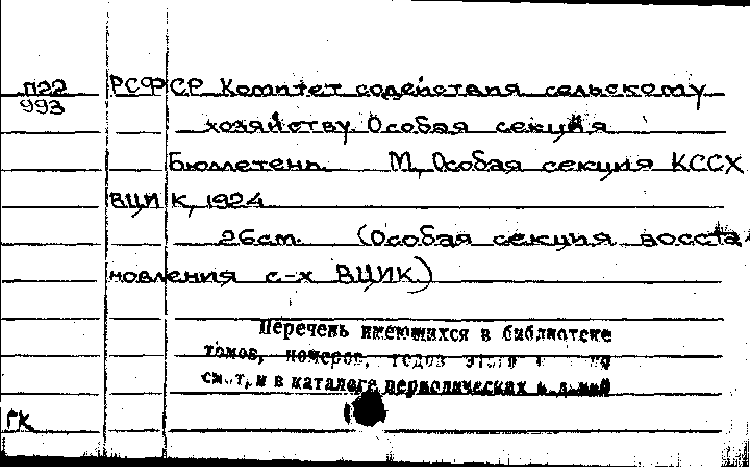 П22
993
РСФСР Комитет содействия сельскому
хозяйству. Особая секция
Бюллетень. М, Особая секция КССХ
ВЦИК, 1924
26см. (Особая секция восста-
новления с-х ВЦИК)
Перечень имеющихся в библиотеке
томов, номеров, годов
в каталоге периодических
ГК